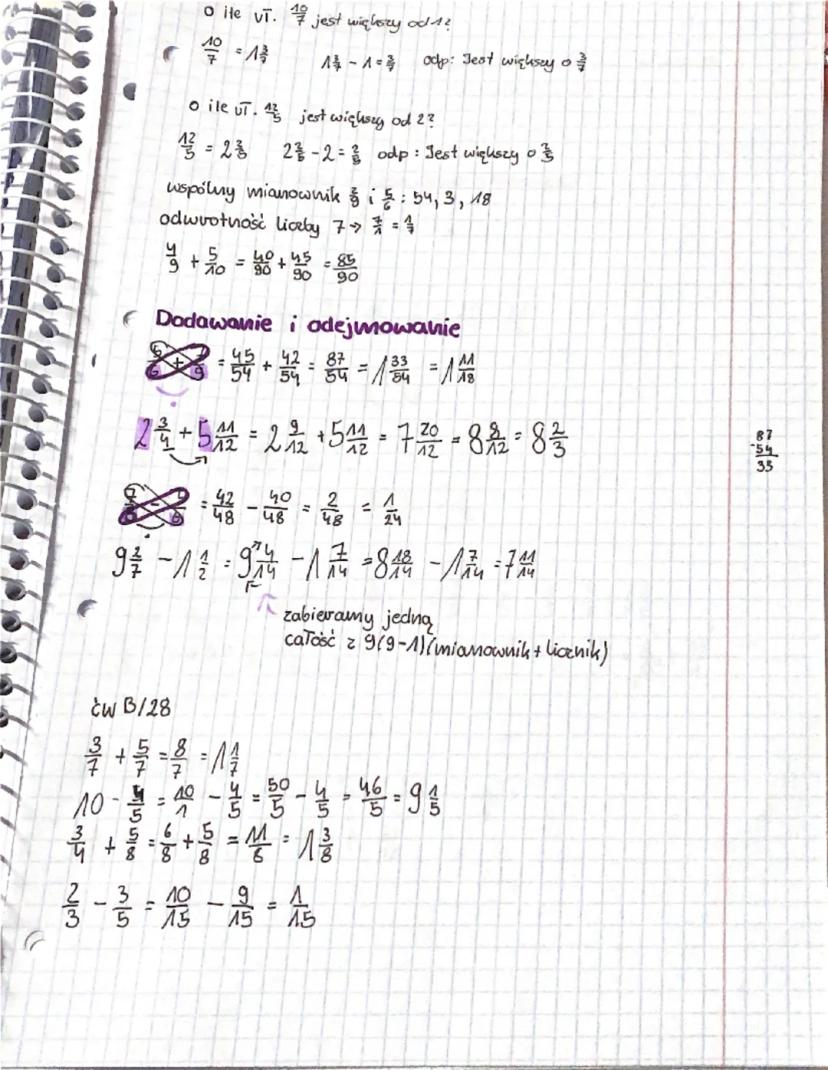 o ile uł. 10/7 jest większy od 1?
10/7 = 1 3/7   1 3/7 - 1 = 3/7   odp: Jest większy o 3/7
o ile uł. 12/5 jest większy od 2?
12/5 = 2 2/5   2 2/5 - 2 = 2/5   odp: Jest większy o 2/5
wspólny mianownik 2/9 i 5/6 : 54, 3, 18
odwrotność liczby 7 → 7/1 = 1/7
4/9 + 5/10 = 40/90 + 45/90 = 85/90
Dodawanie i odejmowanie
5/6 + 7/9 = 45/54 + 42/54 = 87/54 = 1 33/54 = 1 11/18
2 3/4 + 5 11/12 = 2 9/12 + 5 11/12 = 7 20/12 = 8 8/12 = 8 2/3
87
-54
33
= 42/48 - 40/48 = 2/48 = 1/24
9 2/7 - 1 1/2 = 9 4/14 - 1 7/14 = 8 18/14 - 1 7/14 = 7 11/14
zabieramy jedną
całość z 9 (9-1) (mianownik + licznik)
ćw B/28
3/7 + 5/7 = 8/7 = 1 1/7
10 - 4/5 = 10/1 - 4/5 = 50/5 - 4/5 = 46/5 = 9 1/5
3/4 + 5/8 = 6/8 + 5/8 = 11/8 = 1 3/8
2/3 - 3/5 = 10/15 - 9/15 = 1/15